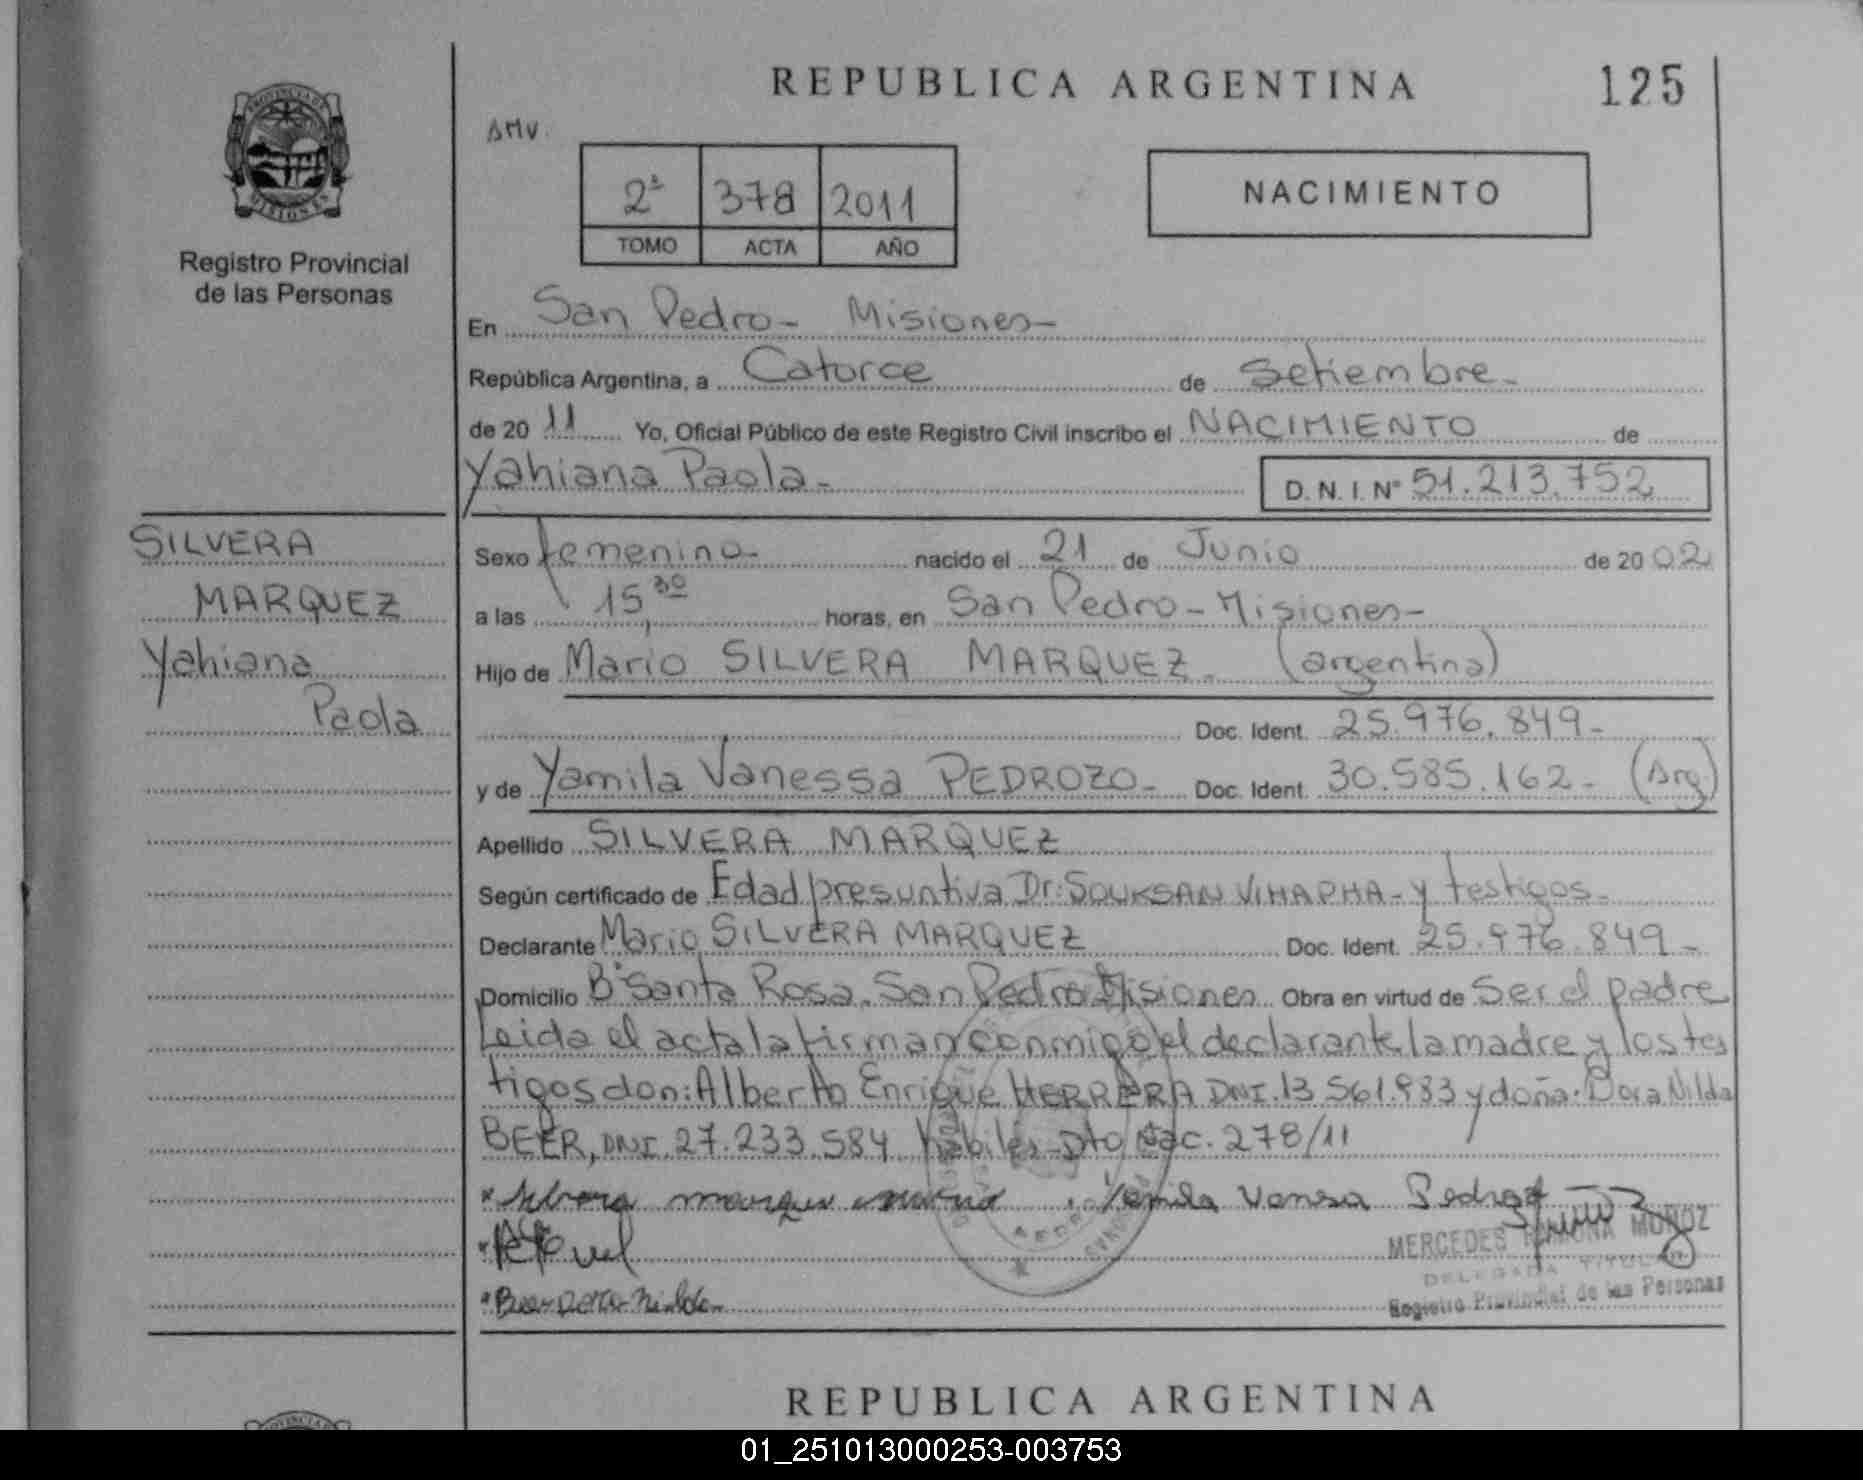 REPUBLICA ARGENTINA
125
PROVINCIA DE
MISIONES
Registro Provincial
de las Personas
AMV.
2ª 378 2011
TOMO ACTA AÑO
NACIMIENTO
En San Pedro- Misiones-
República Argentina, a Catorce de Setiembre-
de 20 11 Yo, Oficial Público de este Registro Civil inscribo el NACIMIENTO de
Yahiana Paola- D. N. I. Nº 51.213.752
SILVERA
MARQUEZ
Yahiana
Paola
Sexo femenino- nacido el 21 de Junio de 20 02
a las 15,30 horas, en San Pedro-Misiones-
Hijo de Mario SILVERA MARQUEZ- (argentina)
Doc. Ident. 25.976.849-
y de Yamila Vanessa PEDROZO- Doc. Ident. 30.585.162- (Arg)
Apellido SILVERA MARQUEZ
Según certificado de Edad presuntiva Dr: SOUKSAN VIHAPHA-y testigos-
Declarante Mario SILVERA MARQUEZ Doc. Ident. 25.976.849-
Domicilio Bº Santa Rosa, San Pedro Misiones Obra en virtud de Ser el padre
Leida el acta la firman conmigo el declarante, la madre y los tes
tigos don: Alberto Enrique HERRERA DNI.13 561.983 y doña: Dora Nilda
BEER, DNI.27.233.584 habiles-Dto Nac. 278/11
Silvera marquez mario Yamila Vanesa Pedrozo
MERCEDES RAMONA MUÑOZ
DELEGADA TITULAR
Registro Provincial de las Personas
REPUBLICA ARGENTINA
PROVINCIA
01_251013000253-003753